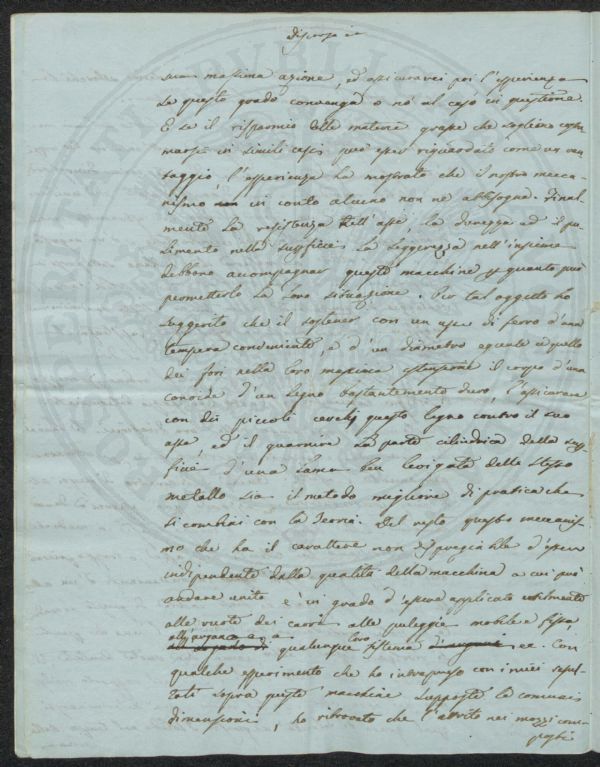 sua massima azione, ed assicuravei poi l'esperienza
se questo grado convenga o nò al caso in questione.
E se il risparmio delle materie grasse che sogliono consu
marsi in simili casi può esser riguardato come un van
taggio, l'esperienza ha mostrato che il nostro mecca
nismo in conto alcuno non ne abbisogna. Final
mente la resistenza dell'asse, la durezza ed il pu
limento nella superficie, la leggerezza nell'insieme
debbono accompagnar queste macchine quanto può
permetterlo la loro situazione. Per tal oggetto ho
suggerito che il sostener con un asse di ferro d'una
tempera conveniente, e d'un diametro eguale a quello
dei fori nella loro massima estensione il corpo d'una
conoide d'un legno bastantemente duro, l'assicurare
con dei piccoli cerchj questo legno contro il suo
asse, ed il guarnire la parte cilindrica della super
ficie d'una lama ben levigata dello stesso
metallo sia il metodo migliore di pratica che
si combini con la Teoria. Del resto questo meccanis
mo che ha il carattere non spregiabile d'essere
indipendente dalla qualità della macchina a cui può
andare unito è in grado d'essere applicato utilmente
alle ruote dei carri alle pulegge mobile e fissa
e a qualunque loro sistema ec. Con
qualche esperimento che ho intrapreso con i miei
sopra queste macchine supposte le comuni
dimensioni, ho ritrovato che l'attrito nei mozzi